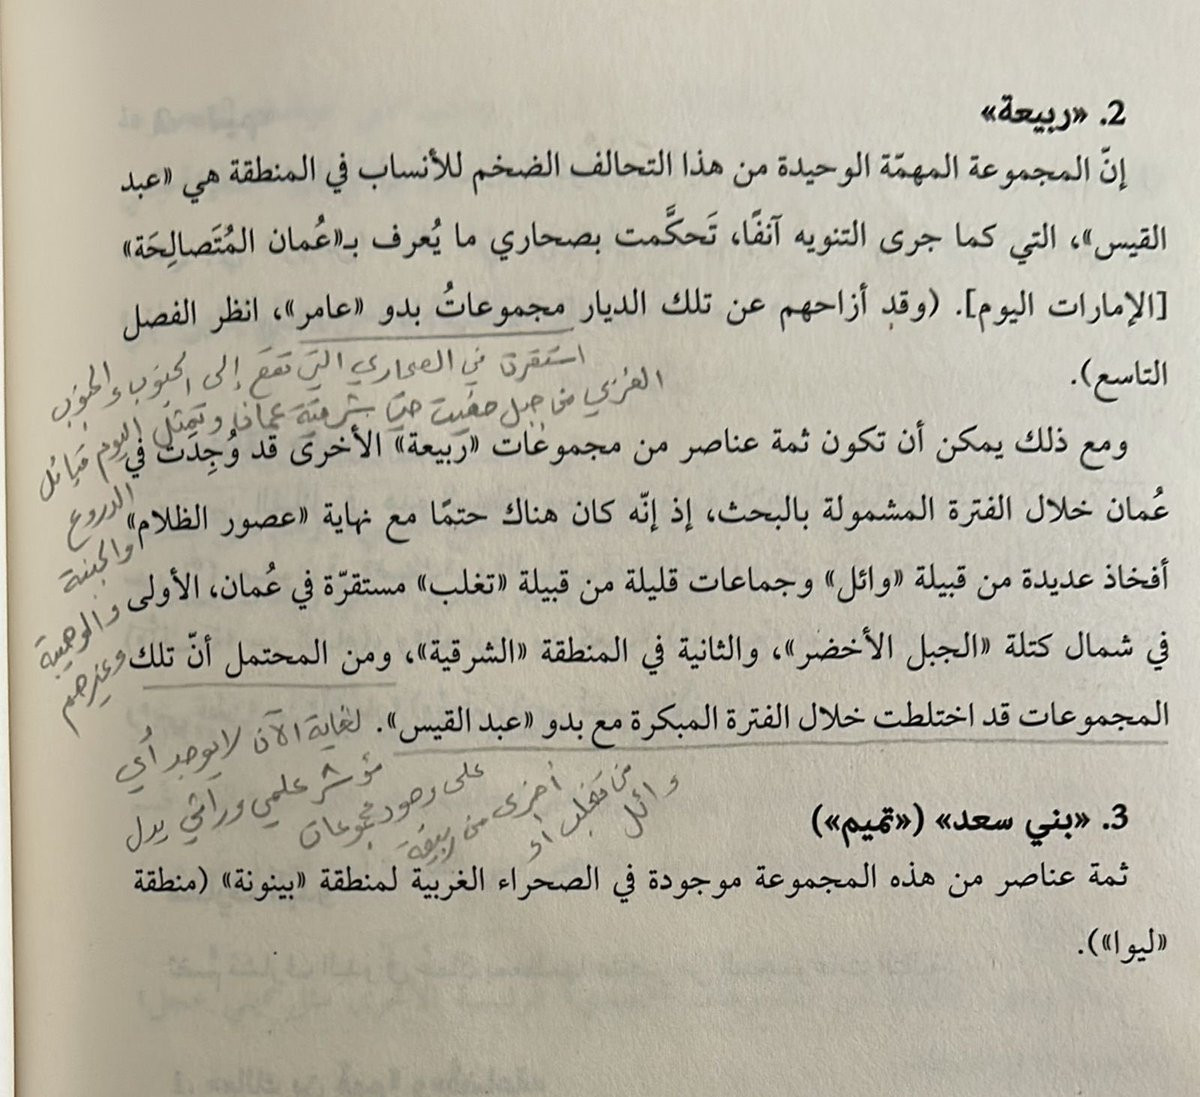 2. «ربيعة»
إنّ المجموعة المهمّة الوحيدة من هذا التحالف الضخم للأنساب في المنطقة هي «عبد
القيس»، التي كما جرى التنويه آنفًا، تَحكَّمت بصحاري ما يُعرف بـ«عُمان المُتَصالِحَة»
[الإمارات اليوم]. (وقد أزاحهم عن تلك الديار مجموعاتُ بدو «عامر»، انظر الفصل
التاسع).
استقرت في الصحاري التي تقع إلى الجنوب والجنوب
الغربي من جبل حفيت حتى شرقية عمان وتمثل اليوم قبائل
الدروع
والجنبة
والوهيبة
وغيرهم
ومع ذلك يمكن أن تكون ثمة عناصر من مجموعات «ربيعة» الأخرى قد وُجِدَت في
عُمان خلال الفترة المشمولة بالبحث، إذ إنّه كان هناك حتمًا مع نهاية «عصور الظلام»
أفخاذ عديدة من قبيلة «وائل» وجماعات قليلة من قبيلة «تغلب» مستقرّة في عُمان، الأولى
في شمال كتلة «الجبل الأخضر»، والثانية في المنطقة «الشرقية»، ومن المحتمل أنّ تلك
المجموعات قد اختلطت خلال الفترة المبكرة مع بدو «عبد القيس».
لغاية الآن لا يوجد أي
مؤشر علمي وراثي يدل
على وجود مجموعات
أخرى من ربيعة
من تغلب أو
وائل
3. «بني سعد» («تميم»)
ثمة عناصر من هذه المجموعة موجودة في الصحراء الغربية لمنطقة «بينونة» (منطقة
«ليوا»).